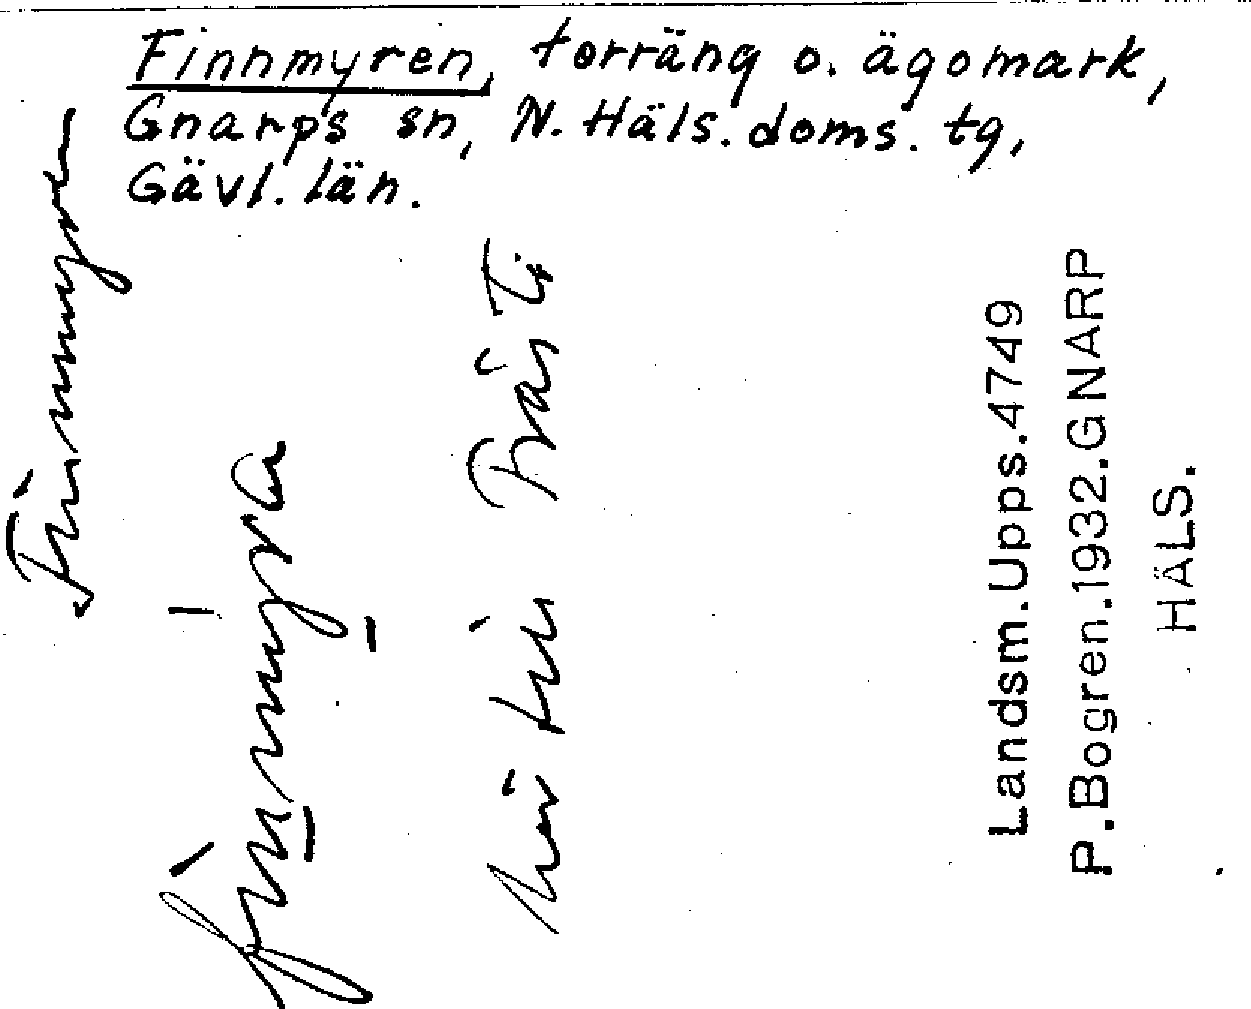 Finnmyren, torräng o. ägomark,
Gnarps sn, N. Häls. doms. tg,
Gävl. län.
Finnmyren
finnmyra
Landsm. Upps. 4749
P. Bogren. 1932. GNARP
HÄLS.